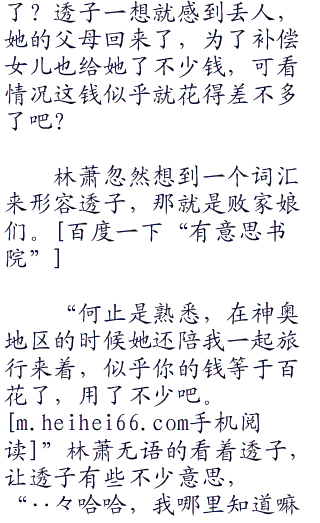 了？透子一想就感到丢人，
她的父母回来了，为了补偿
女儿也给她了不少钱，可看
情况这钱似乎就花得差不多
了吧？
林萧忽然想到一个词汇
来形容透子，那就是败家娘
们。[百度一下“有意思书
院”]
“何止是熟悉，在神奥
地区的时候她还陪我一起旅
行来着，似乎你的钱等于百
花了，用了不少吧。
[m.heihei66.com手机阅
读]”林萧无语的看着透子，
让透子有些不少意思，
“··々哈哈，我哪里知道嘛